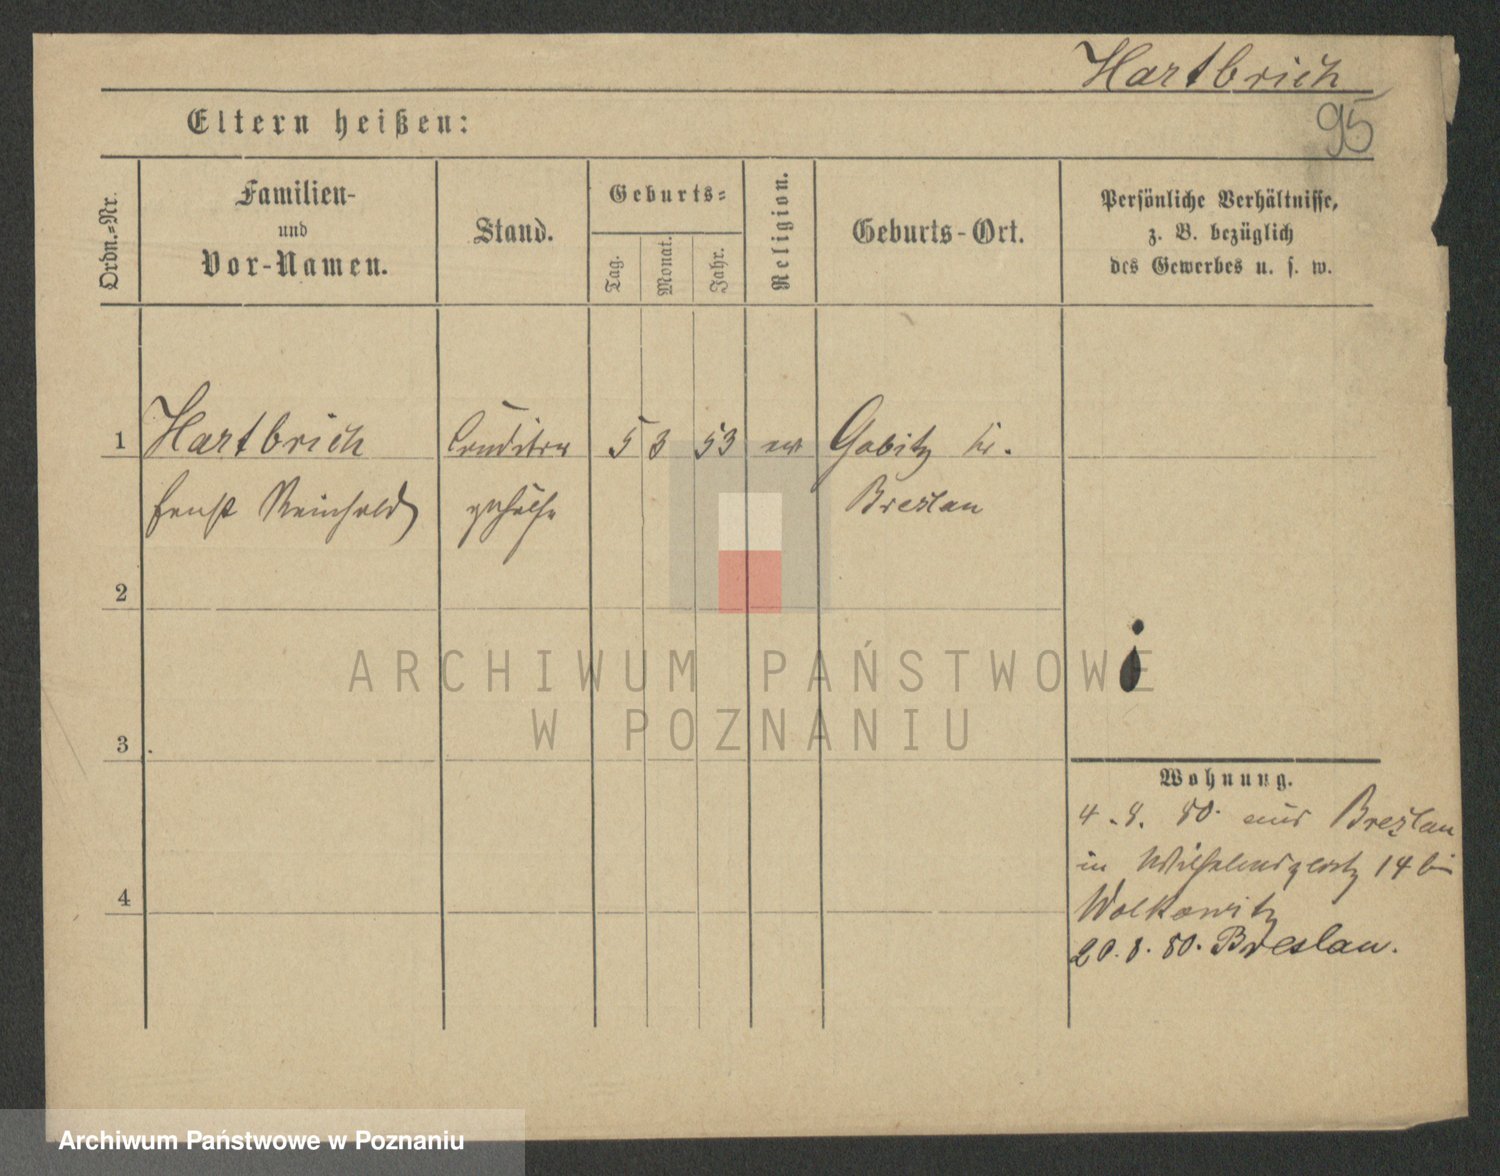 Hartbrich
95
Eltern heißen:
Ordn.=Nr.
Familien-
und
Vor-Namen.
Stand.
Geburts=
Tag.
Monat.
Jahr.
Religion.
Geburts-Ort.
Persönliche Verhältnisse,
z. B. bezüglich
des Gewerbes u. s. w.
1 Hartbrich Conditor 5 3 53 ev Gabitz Kr.
Ernst Reinhold gehülfe Breslau
2
3
4
Wohnung.
4. 8. 80. aus Breslau
in Wilhelmsplatz 14 bei
Wolkowitz
20. 8. 80. Breslau.
ARCHIWUM PAŃSTWOWE
W POZNANIU
Archiwum Państwowe w Poznaniu